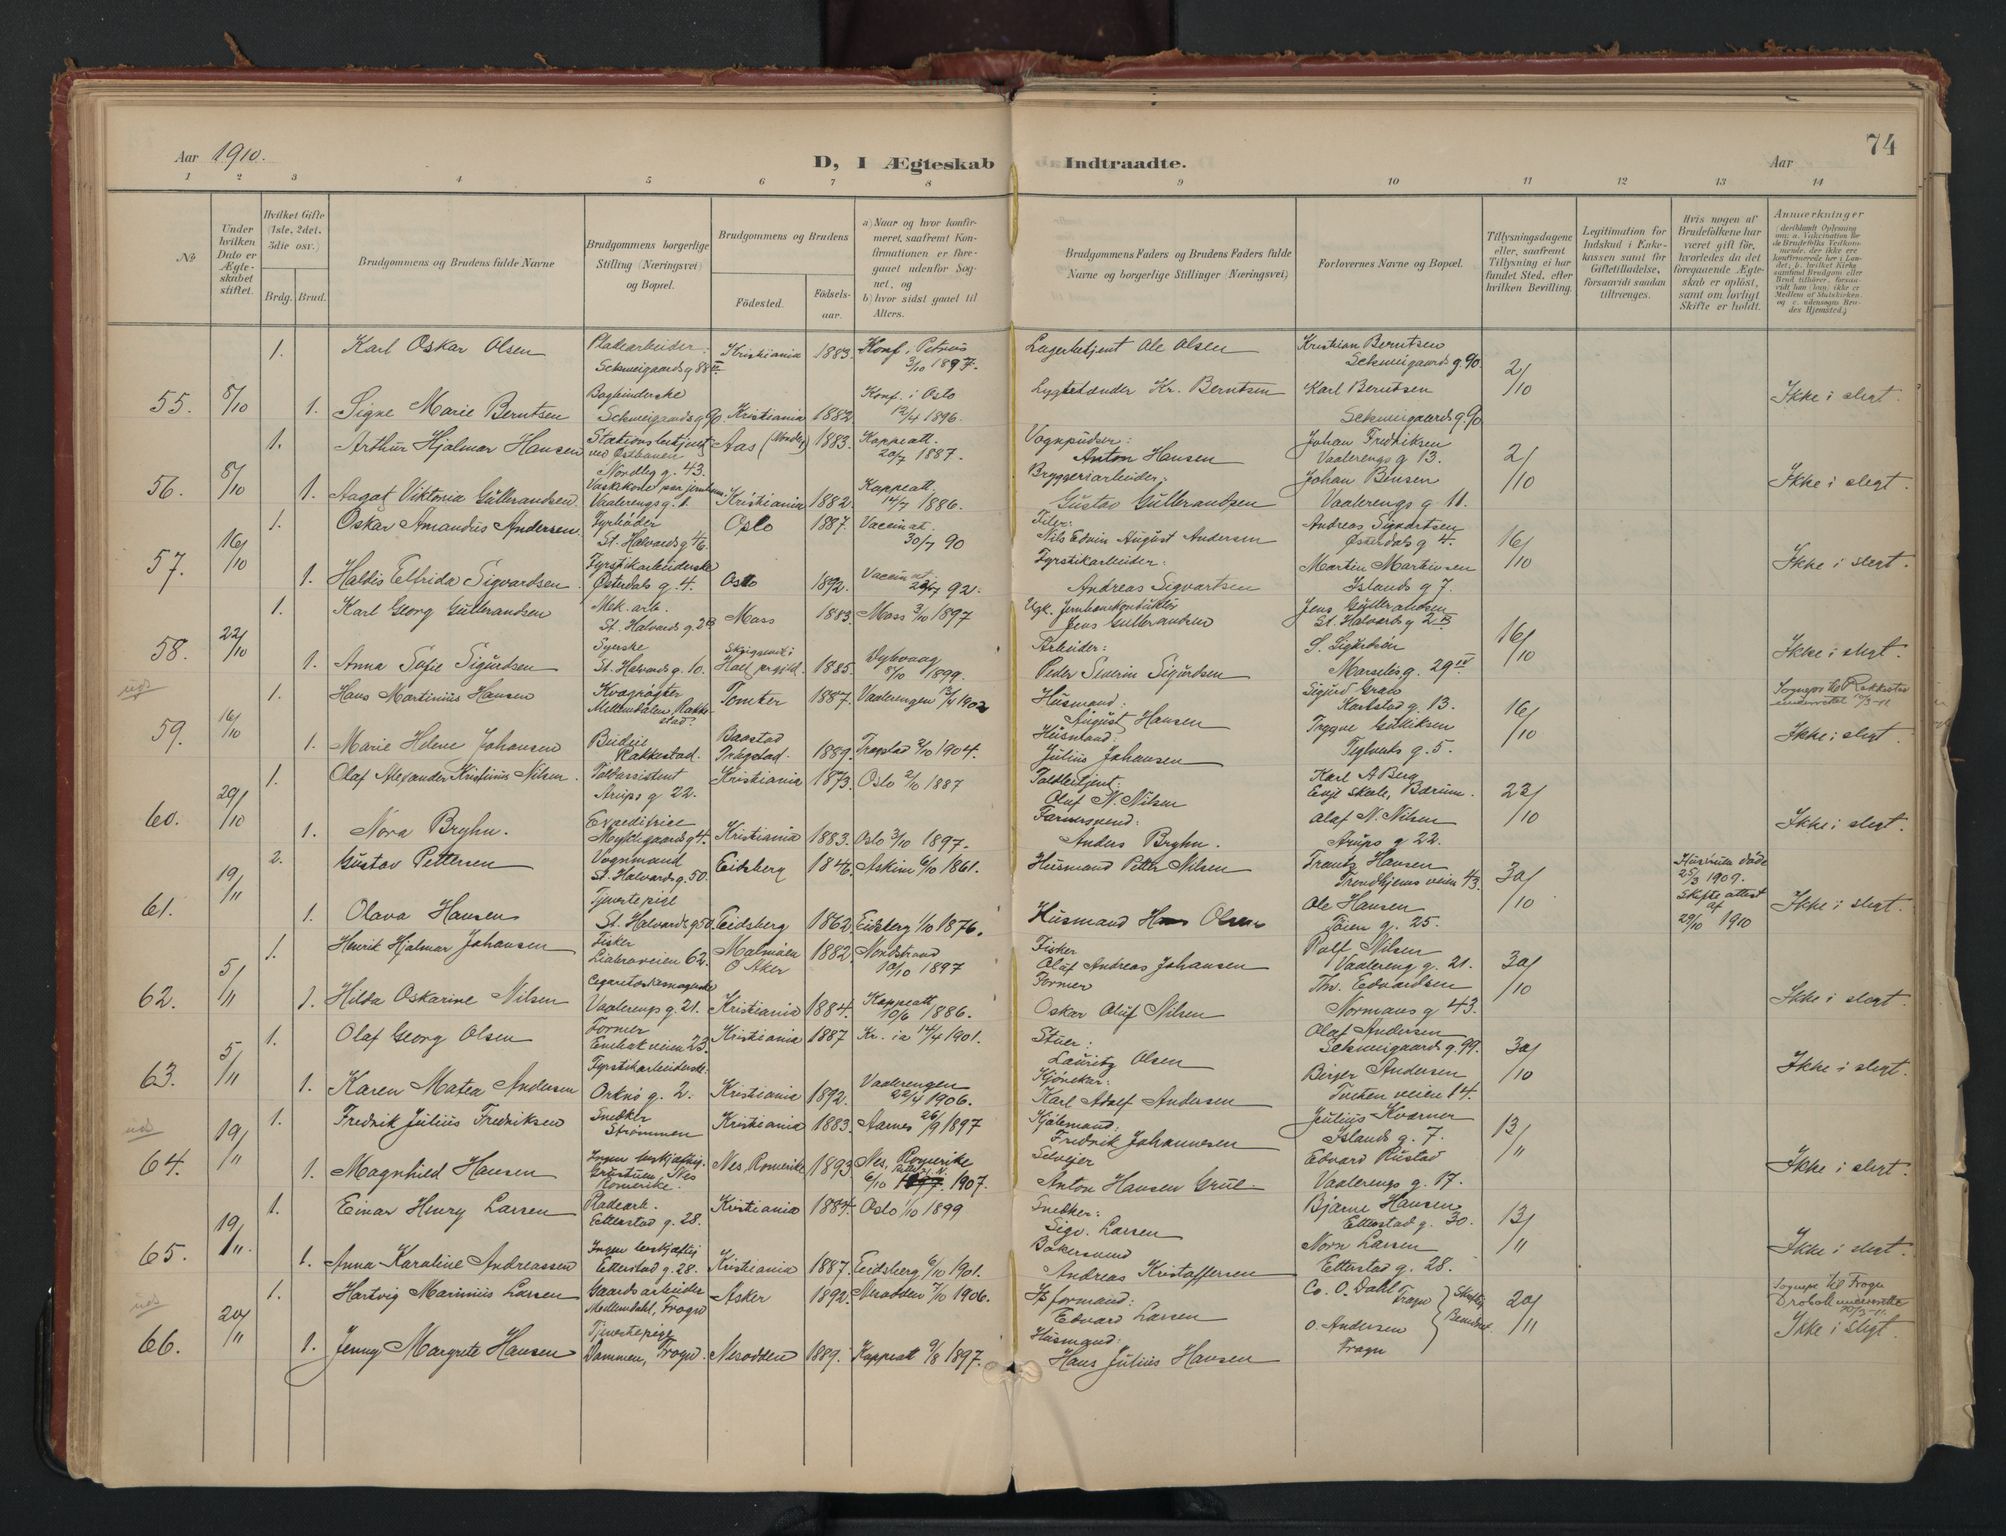 Aar 1910.
D, I Ægteskab Indtraadte.
Aar
74
1 2 3 4 5 6 7 8 9 10 11 12 13 14
No
Under hvilken Dato er Ægteskabet stiftet.
Hvilket Gifte (1ste, 2det, 3die osv.)
Brdg. Brud.
Brudgommens og Brudens fulde Navne
Brudgommens borgerlige Stilling (Næringsvei) og Bopæl.
Brudgommens og Brudens
Fødested. Fødselsaar.
a) Naar og hvor konfirmeret, saafremt Konfirmationen er foregaaet udenfor Sognet, og
b) hvor sidst gaaet til Alters.
Brudgommens Faders og Brudens Faders fulde Navne og borgerlige Stillinger (Næringsvei)
Forlovernes Navne og Bopæl.
Tillysningsdagene eller, saafremt Tillysning ei har fundet Sted, efter hvilken Bevilling.
Legitimation for Indskud i Enkekassen samt for Giftetilladelse, forsaavidt saadan tiltrænges.
Hvis nogen af Brudefolkene har været gift før, hvorledes da det foregaaende Ægteskab er opløst, samt om lovligt Skifte er holdt.
Anmærkninger
1. Karl Oskar Olsen Pladearbeider: Schweigaards g 88 III Kristiania 1883. Konf. i Petrus 3/10 1897. Lagerbetjent Ole Olsen Kristian Berntsen Schweigaards g. 90 2/10
55. 8/10 1. Signe Marie Berntsen Bogbinderske Schweigaards g 90. Kristiania 1882 Konf. i Oslo 12/4 1896. Lygtetænder Kr. Berntsen Karl Berntsen Schweigaards g 90 Ikke i slegt.
1. Arthur Hjalmar Hansen Stationsbetjent ved Østbanen Nordby g. 43. Aas 1883. Koppeatt. 20/7 1887. Vognpudser: Anton Hansen Johan Fredriksen Vaalerengs g 13. 2/10
56. 8/10 1. Aagot Viktoria Gulbrandsen. Vaalerengs g. 11. Kristiania 1882. Koppeatt. 14/7 1886. Bryggeriarbeider: Gustav Gulbrandsen Johan Bensen Vaalerengs g 11. Ikke i slegt.
1. Oskar Amandus Andersen. Fyrbøder St. Halvards g 46. Oslo 1887. Vaccinat. 30/7 90 Filer: Nils Edvin August Andersen Andreas Sigvartsen Østerdals g 4. 16/10
57. 16/10 1. Haldis Elfrida Sigvardsen. Fyrstikarbeiderske Østerdals g. 4 Oslo 1892. Vaccinat 92. Fyrstikarbeider: Andreas Sigvartsen Martin Martinsen Islands g 7. Ikke i slegt.
1. Karl Georg Gulbrandsen Mek. arb. St. Halvards g. 2B Moss 1883. Moss 3/10 1897 Jernbanekonduktør Jens Gulbrandsen Jens Gulbrandsen St. Halvards g 2 B 16/10
58. 22/10 1. Anna Sofie Sigurdsen Syerske St. Halvards g. 10. 1885. Dybvaag 8/10 1899. Arbeider: Peder Severin Sigurdsen S. Sigurdsen Marselis g. 29 IV Ikke i slegt.
1. Hans Martinius Hansen Mellemdalen, Rakkestad. Tomter 1887. Vaalerengen 13/4 1902 Husmand: August Hansen Sigurd Gran Karlstad g. 13. 16/10 Sognepr. til Rakkestad underrettet 10/3-11
59. 16/10 1. Marie Helene Johansen Budeie Rakkestad. Baastad Trøgstad. 1889. Trøgstad 2/10 1904. Husmand: Julius Johansen Trygve Gulliksen Teglverks g. 5. Ikke i slegt.
1. Olaf Alexander Kristinius Nilsen. Toldassistent Arups g 22. Kristiania 1873. Oslo 2/10 1887 Toldbetjent: Oluf N. Nilsen Karl A Berg Evje skole, Bærum. 23/10
60. 29/10 1. Nova Bryhn. Expeditrice g 4. Kristiania 1883. Oslo 3/10 1897. Anders Bryhn. Olaf N. Nilsen Arups g 22. Ikke i slegt.
2. Gustav Pettersen Vognmand St. Halvards g. 50. Eidsberg 1846. Askim 6/10 1861. Husmand Petter Nilsen Frantz Hansen Trondhjems veien 43. 30/10 Hustru døde 25/3 1909. Skifteattest af 29/10 1910
61. 19/11 1. Olava Hansen Tjenestepige St. Halvards g. 50 Eidsberg 1862. Eidsberg 1/10 1876. Husmand Olsen Ole Hansen Tøien g. 25. Ikke i slegt.
1. Henrik Hjalmar Johansen Fisker Liabroveien 62. Malmøen Ø Aker 1882. Nordstrand 10/10 1897 Fisker Olaf Andreas Johansen Rolf Nilsen Vaalereng g. 21. 30/10
62. 5/11 1. Hilda Oskarine Nilsen Cigaretæskemagerske Vaalerengs g. 21. Kristiania 1884. Koppeatt 10/6 1886. Former Oskar Oluf Nilsen Th. Edvardsen Normans g 43. Ikke i slegt.
1. Olaf Georg Olsen Former Enebakveien 23. Kristiania 1887 14/4 1901. Stuer: Lauritz Olsen Olaf Andersen Schweigaards g. 99. 30/10
63. 5/11 1. Karen Matea Andersen Fyrstikarbeiderske. Orknø g. 2. Kristiania 1892. Vaalerengen 22/4 1906. Karl Adolf Andersen Birger Andersen veien 14. Ikke i slegt.
1. Fredrik Julius Fredriksen Snedker Strømmen Kristiania 1883. Aarnes 26/9 1897 Fredrik Johannesen Julius Kværner Islands g. 7. 13/11
64. 19/11 1. Magnhild Hansen Ingen beskjæftig. Nes Romerike. Nes, Romerike 1893 Nes, Romerike 6/10 1907. Selveier Anton Hansen Grue. Edvard Rustad Vaalerengs g. 17. Ikke i slegt.
1. Einar Henry Larsen Pladearb. Etterstad g. 28. Kristiania 1884. Oslo 1/10 1899 Snedker: Sigv. Larsen Bjarne Hansen Etterstad g. 30. 13/11
65. 19/11. 1. Anna Karoline Andreassen Ingen beskjæftig Etterstad g. 28. Kristiania 1887. Eidsberg 6/10 1901. Bakersvend Andreas Kristoffersen Norn Larsen Etterstad g. 28. Ikke i slegt.
1. Hartvig Marinius Larsen Gaardsarbeider Mellemdahl, Frogn Asker 1892. Nesodden 7/10 1906. Formand: Edvard Larsen Co. O. Dahl Frogn 20/11 Sognepr. til Frogn Drøbak underrettet 10/3-11.
66. 20/11 1. Jenny Margrete Hansen Tjenestepige Dammen, Frogn. Nesodden 1889. Koppeatt 9/8 1897. Husmand: Hans Julius Hansen O. Andersen Frogn Ikke i slegt.